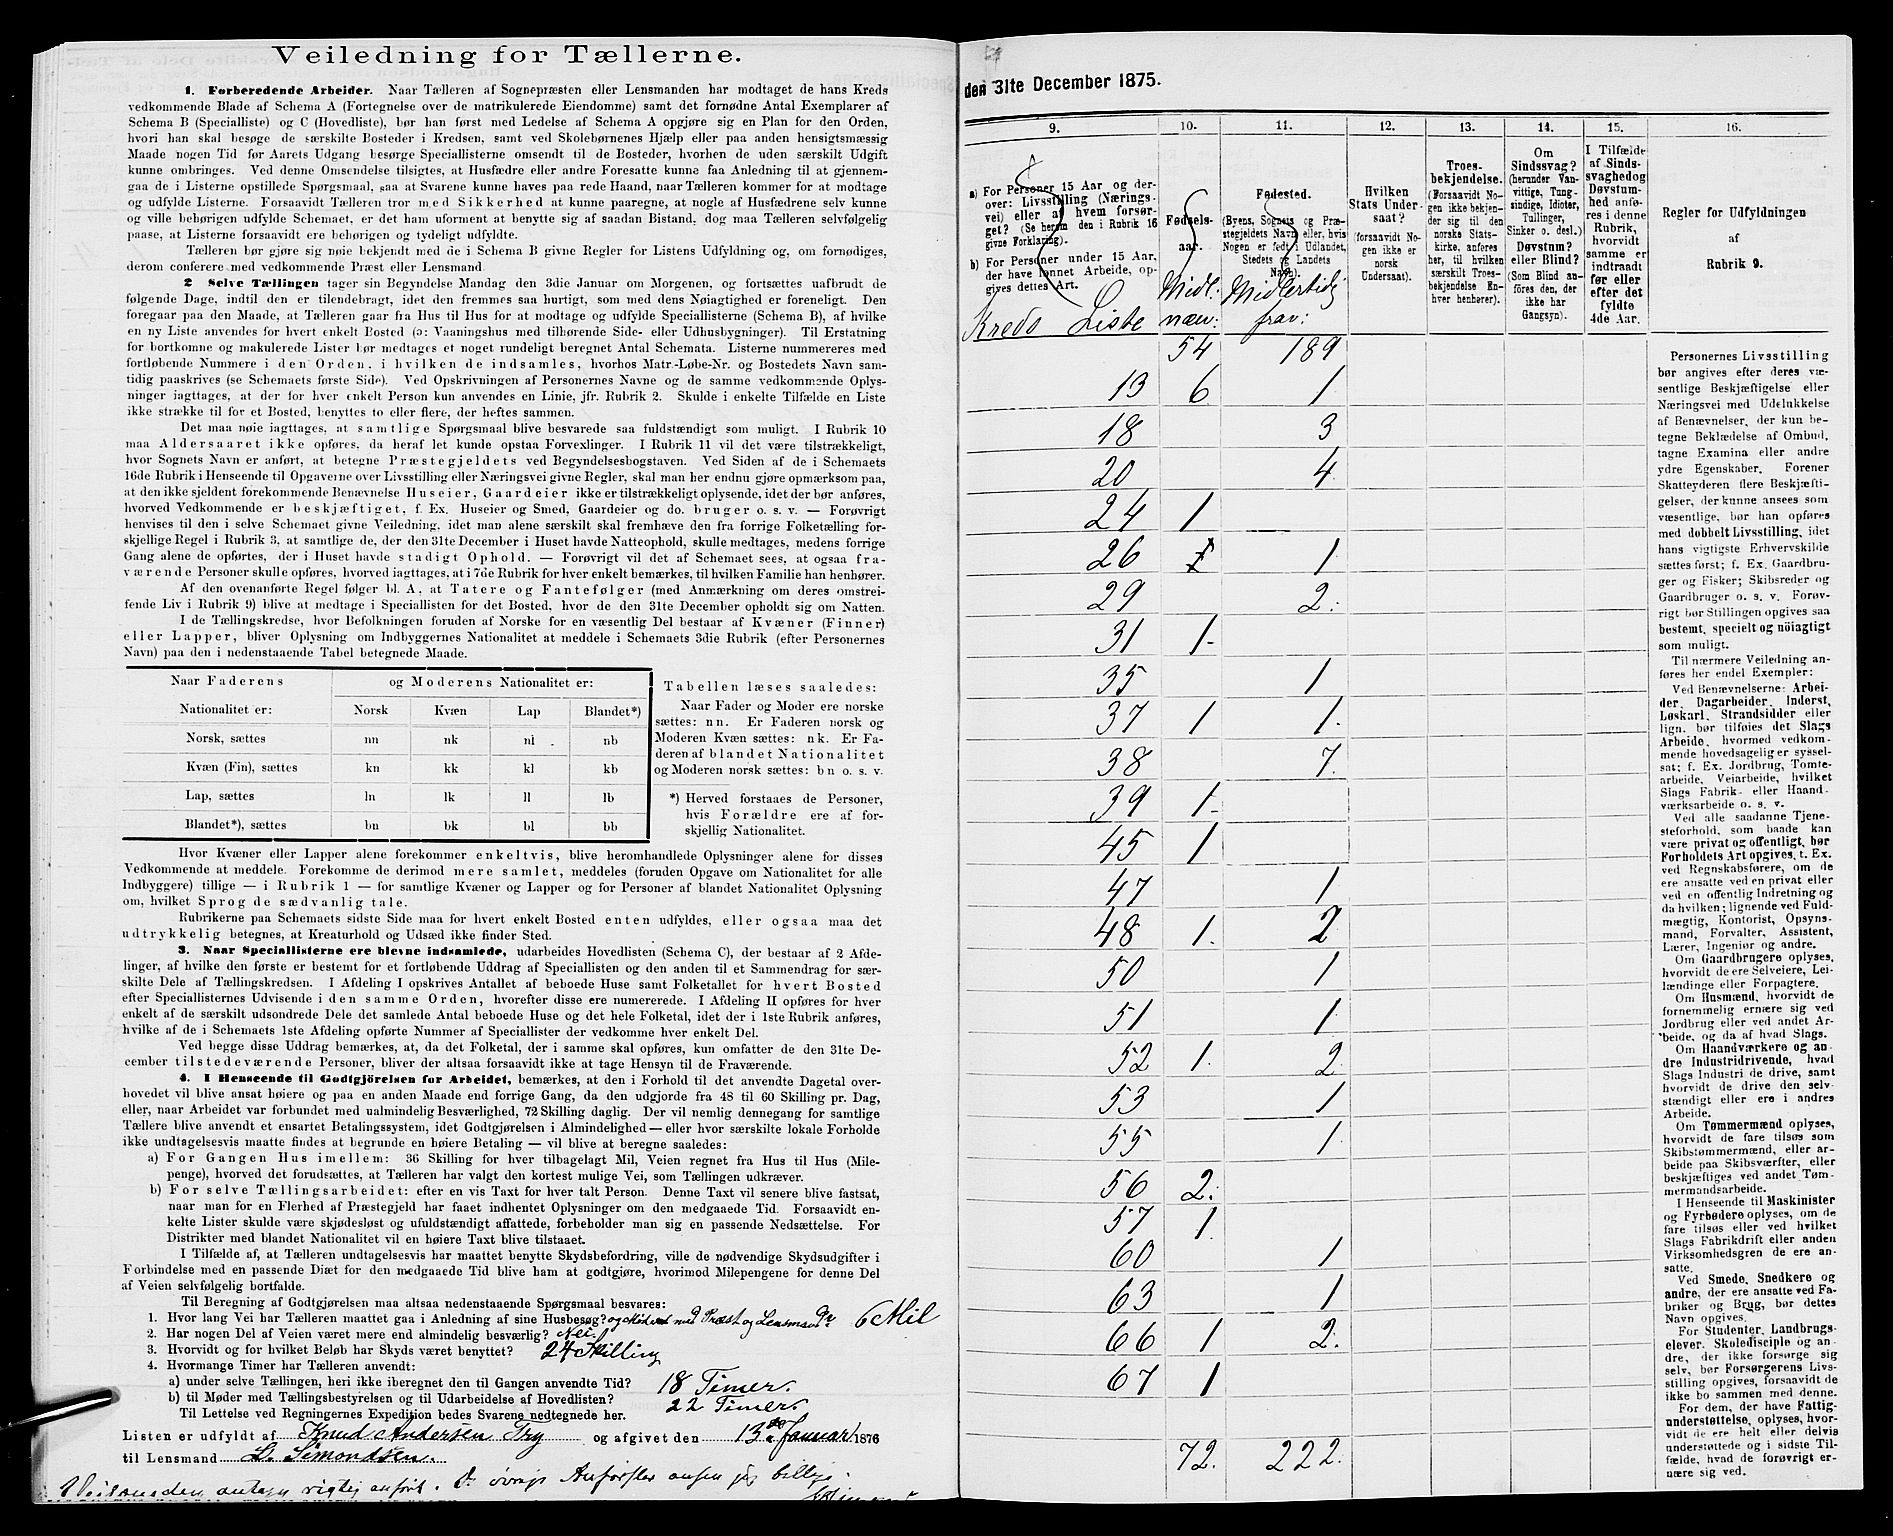 Veiledning for Tællerne.
1. Forberedende Arbeider. Naar Tælleren af Sognepræsten eller Lensmanden har modtaget de hans Kreds
vedkommende Blade af Schema A (Fortegnelse over de matrikulerede Eiendomme) samt det fornødne Antal Exemplarer af
Schema B (Specialliste) og C (Hovedliste), bør han først med Ledelse af Schema A opgjøre sig en Plan for den Orden,
hvori han skal besøge de særskilte Bosteder i Kredsen, samt ved Skolebørnenes Hjælp eller paa anden hensigtsmæssig
Maade nogen Tid før Aarets Udgang besørge Speciallisterne omsendt til de Bosteder, hvorhen de uden særskilt Udgift
kunne ombringes. Ved denne Omsendelse tilsigtes, at Husfædre eller andre Foresatte kunne faa Anledning til at gjennem-
gaa de i Listerne opstillede Spørgsmaal, saa at Svarene kunne haves paa rede Haand, naar Tælleren kommer for at modtage
og udfylde Listerne. Forsaavidt Tælleren tror med Sikkerhed at kunne paaregne, at nogle af Husfædrene selv kunne
og ville behørigen udfylde Schemaet, er det ham uforment at benytte sig af saadan Bistand, dog maa Tælleren selvfølgelig
paase, at Listerne forsaavidt ere behørigen og tydeligt udfyldte.
Tælleren bør gjøre sig nøie bekjendt med de i Schema B givne Regler for Listens Udfyldning og, om fornødiges,
derom conferere med vedkommende Præst eller Lensmand
2 Selve Tællingen tager sin Begyndelse Mandag den 3die Januar om Morgenen, og fortsættes uafbrudt de
følgende Dage, indtil den er tilendebragt, idet den fremmes saa hurtigt, som med dens Nøiagtighed er foreneligt. Den
foregaar paa den Maade, at Tælleren gaar fra Hus til Hus for at modtage og udfylde Speciallisterne (Schema B), af hvilke
en ny Liste anvendes for hvert enkelt Bosted (ɔ: Vaaningshus med tilhørende Side- eller Udhusbygninger). Til Erstatning
for bortkomne og makulerede Lister bør medtages et noget rundeligt beregnet Antal Schemata. Listerne nummereres med
fortløbende Nummere i den Orden, i hvilken de indsamles, hvorhos Matr.-Løbe-Nr. og Bostedets Navn sam-
tidig paaskrives (se Schemaets første Side). Ved Opskrivningen af Personernes Navne og de samme vedkommende Oplys-
ninger iagttages, at der for hver enkelt Person kun anvendes en Linie, jfr. Rubrik 2. Skulde i enkelte Tilfælde en Liste
ikke strække til for et Bosted, benyttes to eller flere, der heftes sammen.
Det maa nøie iagttages, at samtlige Spørgsmaal blive besvarede saa fuldstændigt som muligt. I Rubrik 10
maa Aldersaaret ikke opføres, da heraf let kunde opstaa Forvexlinger. I Rubrik 11 vil det være tilstrækkeligt,
hvor Sognets Navn er anført, at betegne Præstegjeldets ved Begyndelsesbogstaven. Ved Siden af de i Schemaets
16de Rubrik i Henseende til Opgaverne over Livsstilling eller Næringsvei givne Regler, skal man her endnu gjøre opmærksom paa,
at den ikke sjeldent forekommende Benævnelse Huseier, Gaardeier ikke er tilstrækkeligt oplysende, idet der bør anføres,
hvorved Vedkommende er beskjæftiget, f. Ex. Huseier og Smed, Gaardeier og do. bruger o. s. v. — Forøvrigt
henvises til den i selve Schemaet givne Veiledning, idet man alene særskilt skal fremhæve den fra forrige Folketælling for-
skjellige Regel i Rubrik 3, at samtlige de, der den 31te December i Huset havde Natteophold, skulle medtages, medens forrige
Gang alene de opførtes, der i Huset havde stadigt Ophold. — Forøvrigt vil det af Schemaet sees, at ogsaa fra-
værende Personer skulle opføres, hvorved iagttages, at i 7de Rubrik for hver enkelt bemærkes, til hvilken Familie han henhører.
Af den ovenanførte Regel følger bl. A, at Tatere og Fantefølger (med Anmærkning om deres omstrei-
fende Liv i Rubrik 9) blive at medtage i Speciallisten for det Bosted, hvor de den 31te December opholdt sig om Natten.
I de Tællingskredse, hvor Befolkningen foruden af Norske for en væsentlig Del bestaar af Kvæner (Finner)
eller Lapper, bliver Oplysning om Indbyggernes Nationalitet at meddele i Schemaets 3die Rubrik (efter Personernes
Navn) paa den i nedenstaaende Tabel betegnede Maade.
Naar Faderens og Moderens Nationalitet er:
Nationalitet er: Norsk Kvæn Lap Blandet*)
Norsk, sættes nn nk nl nb
Kvæn (Fin), sættes kn kk kl kb
Lap, sættes ln lk ll lb
Blandet*), sættes bn bk bl bb
Tabellen læses saaledes:
Naar Fader og Moder ere norske
sættes: nn. Er Faderen norsk og
Moderen Kvæn sættes: nk. Er Fa-
deren af blandet Nationalitet
og Moderen norsk sættes: bn o. s. v.
*) Herved forstaaes de Personer,
hvis Forældre ere af for-
skjellig Nationalitet.
Hvor Kvæner eller Lapper alene forekommer enkeltvis, blive heromhandlede Oplysninger alene for disses
Vedkommende at meddele. Forekomme de derimod mere samlet, meddeles (foruden Opgave om Nationalitet for alle
Indbyggere) tillige — i Rubrik 1 — for samtlige Kvæner og Lapper og for Personer af blandet Nationalitet Oplysning
om, hvilket Sprog de sædvanlig tale.
Rubrikerne paa Schemaets sidste Side maa for hvert enkelt Bosted enten udfyldes, eller ogsaa maa det
udtrykkelig betegnes, at Kreaturhold og Udsæd ikke finder Sted.
3. Naar Speciallisterne ere blevne indsamlede, udarbeides Hovedlisten (Schema C), der bestaar af 2 Afde-
linger, af hvilke den første er bestemt for et fortløbende Uddrag af Speciallisten og den anden til et Sammendrag for sær-
skilte Dele af Tællingskredsen. I Afdeling I opskrives Antallet af beboede Huse samt Folketallet for hvert Bosted
efter Speciallisternes Udvisende i den samme Orden, hvorefter disse ere nummererede. I Afdeling II opføres for hver
enkelt af de særskilt udsondrede Dele det samlede Antal beboede Huse og det hele Folketal, idet der i 1ste Rubrik anføres,
hvilke af de i Schemaets 1ste Afdeling opførte Nummer af Speciallister der vedkomme hver enkelt Del.
Ved begge disse Uddrag bemærkes, at, da det Folketal, der i samme skal opføres, kun omfatter de den 31te De-
cember tilstedeværende Personer, bliver der altsaa forsaavidt ikke at tage Hensyn til de Fraværende.
4. I Henseende til Godtgjörelsen for Arbeidet, bemærkes, at den i Forhold til det anvendte Dagetal over-
hovedet vil blive ansat høiere og paa en anden Maade end forrige Gang, da den udgjorde fra 48 til 60 Skilling pr. Dag,
eller, naar Arbeidet var forbundet med ualmindelig Besværlighed, 72 Skilling daglig. Der vil nemlig dennegang for samtlige
Tællere blive anvendt et ensartet Betalingssystem, idet Godtgjørelsen i Almindelighed — eller hvor særskilte lokale Forholde
ikke undtagelsesvis maatte findes at begrunde en høiere Betaling — vil blive at beregne saaledes:
a) For Gangen Hus imellem: 36 Skilling for hver tilbagelagt Mil, Veien regnet fra Hus til Hus (Mile-
penge), hvorved det forudsættes, at Tælleren har valgt den kortest mulige Vei, som Tællingen udkræver.
b) For selve Tællingsarbeidet: efter en vis Taxt for hver talt Person. Denne Taxt vil senere blive fastsat,
naar man for en Flerhed af Præstegjeld har faaet indhentet Oplysninger om den medgaaede Tid. Forsaavidt en-
kelte Lister skulde være skjødesløst og ufuldstændigt affattede, forbeholder man sig en passende Nedsættelse. For
Distrikter med blandet Nationalitet vil en høiere Taxt blive tilstaaet.
I Tilfælde af, at Tælleren undtagelsesvis har maattet benytte Skydsbefordring, ville de nødvendige Skydsudgifter i
Forbindelse med en passende Diæt for den medgaaede Tid blive ham at godtgjøre, hvorimod Milepengene for denne Del
af Veien selvfølgelig bortfalde.
Til Beregning af Godtgjørelsen maa altsaa nedenstaaende Spørgsmaal besvares:
1. Hvor lang Vei har Tælleren maattet gaa i Anledning af sine Husbesøg? og Mödet med Præst og Lensmand 6 Mil
2. Har nogen Del af Veien været mere end almindelig besværlig? Nei.
3. Hvorvidt og for hvilket Beløb har Skyds været benyttet? 24 Skilling
4. Hvormange Timer har Tælleren anvendt:
a) under selve Tællingen, heri ikke iberegnet den til Gangen anvendte Tid? 18 Timer.
b) til Møder med Tællingsbestyrelsen og til Udarbeidelse af Hovedlisten? 22 Timer.
Til Lettelse ved Regningernes Expedition bedes Svarene nedtegnede her.
Listen er udfyldt af Knud Andersen Try og afgivet den 13de Januar 1876
til Lensmand L. Simondsen.
Veilængden antages rigtig anført. De øvrige Anförsler ansees billige.
den 31te December 1875.
9. 10. 11. 12. 13. 14. 15. 16.
a) For Personer 15 Aar og der-
over: Livsstilling (Nærings-
vei) eller af hvem forsør-
get? (Se herom den i Rubrik 16
givne Forklaring).
b) For Personer under 15 Aar,
der have lønnet Arbeide, op-
gives dettes Art.
Kreds Liste
Fødsels-
aar.
Midl:
næv:
Fødested.
(Byens, Sognets og Præ-
stegjeldets Navn, eller, hvis
Nogen er født i Udlandet,
Stedets og Landets
Navn).
Midlertidig
frav:
Hvilken
Stats Under-
saat?
(forsaavidt No-
gen ikke er
norsk
Undersaat).
Troes-
bekjendelse.
(Forsaavidt No-
gen ikke bekjen-
der sig til den
norske Stats-
kirke, anføres
her, til hvilken
særskilt Troes-
bekjendelse En-
hver henhører).
Om
Sindssvag?
(herunder Van-
vittige, Tung-
sindige, Idioter,
Tullinger,
Sinker o. desl.)
Døvstum?
eller Blind?
(Som Blind an-
føres den, der
ikke har
Gangsyn).
I Tilfælde
af Sinds-
svaghed og
Døvstum-
hed anfø-
res i denne
Rubrik,
hvorvidt
samme er
indtraadt
før eller
efter det
fyldte
4de Aar.
Regler for Udfyldningen
af
Rubrik 9.
54 189
13 6 1
18 3
20 4
24 1
26 1
29 2.
31 1
35 1
37 1 1.
38 7.
39 1
45 1
47 1
48 1. 2
50 1
51 1
52 1. 2
53 1
55 1
56 2.
57 1.
60 1
63 1
66 1 2.
67 1
72. 222.
Personernes Livsstilling
bør angives efter deres væ-
sentlige Beskjæftigelse eller
Næringsvei med Udelukkelse
af Benævnelser, der kun be-
tegne Beklædelse af Ombud,
tagne Examina eller andre
ydre Egenskaber. Forener
Skatteyderen flere Beskjæfti-
gelser, der kunne ansees som
væsentlige, bør han opføres
med dobbelt Livsstilling, idet
hans vigtigste Erhvervskilde
sættes først; f. Ex. Gaardbru-
ger og Fisker; Skibsreder og
Gaardbruger o. s. v. Forøv-
rigt bør Stillingen opgives saa
bestemt, specielt og nöiagtigt
som muligt.
Til nærmere Veiledning an-
føres her endel Exempler:
Ved Benævnelserne: Arbei-
der, Dagarbeider, Inderst,
Løskarl, Strandsidder eller
lign. bør tilføies det Slags
Arbeide, hvormed vedkom-
mende hovedsagelig er syssel-
sat; f. Ex. Jordbrug, Tomte-
arbeide, Veiarbeide, hvilket
Slags Fabrik- eller Haand-
værksarbeide o. s. v.
Ved alle saadanne Tjene-
steforhold, som baade kan
være privat og offentligt, bør
Forholdets Art opgives, t. Ex.
ved Regnskabsførere, om de
ere ansatte ved en privat eller
ved en offentlig Indretning og
da hvilken; lignende ved Fuld-
mægtig, Kontorist, Opsyns-
mand, Forvalter, Assistent,
Lærer, Ingeniør og andre.
Om Gaardbrugere oplyses,
hvorvidt de ere Selveiere, Lei-
lændinge eller Forpagtere.
Om Husmænd, hvorvidt de
fornemmelig ernære sig ved
Jordbrug eller ved andet Ar-
beide, og da af hvad Slags.
Om Haandværkere og an-
dre Industridrivende, hvad
Slags Industri de drive, samt
hvorvidt de drive den selv-
stændigt eller ere i andres
Arbeide.
Om Tømmermænd oplyses,
hvorvidt de fare tilsøs som
Skibstømmermænd, eller ar-
beide paa Skibsværfter, eller
beskjæftiges ved andet Tøm-
mermandsarbeide.
I Henseende til Maskinister
og Fyrbødere oplyses, om de
fare tilsøs eller ved hvilket
Slags Fabrikdrift eller anden
Virksomhedsgren de ere an-
satte.
Ved Smede, Snedkere og
andre, der ere ansatte ved Fa-
briker og Brug, bør dettes
Navn opgives.
For Studenter, Landbrugs-
elever, Skoledisciple og an-
dre, der ikke forsørge sig
selv, bør Forsørgerens Livs-
stilling opgives, forsaavidt de
ikke bo sammen med denne.
For dem, der have Fattig-
understøttelse, oplyses, hvor-
vidt de ere helt eller delvis
understøttede og i sidste Til-
fælde, hvad de forøvrigt er-
nære sig ved.